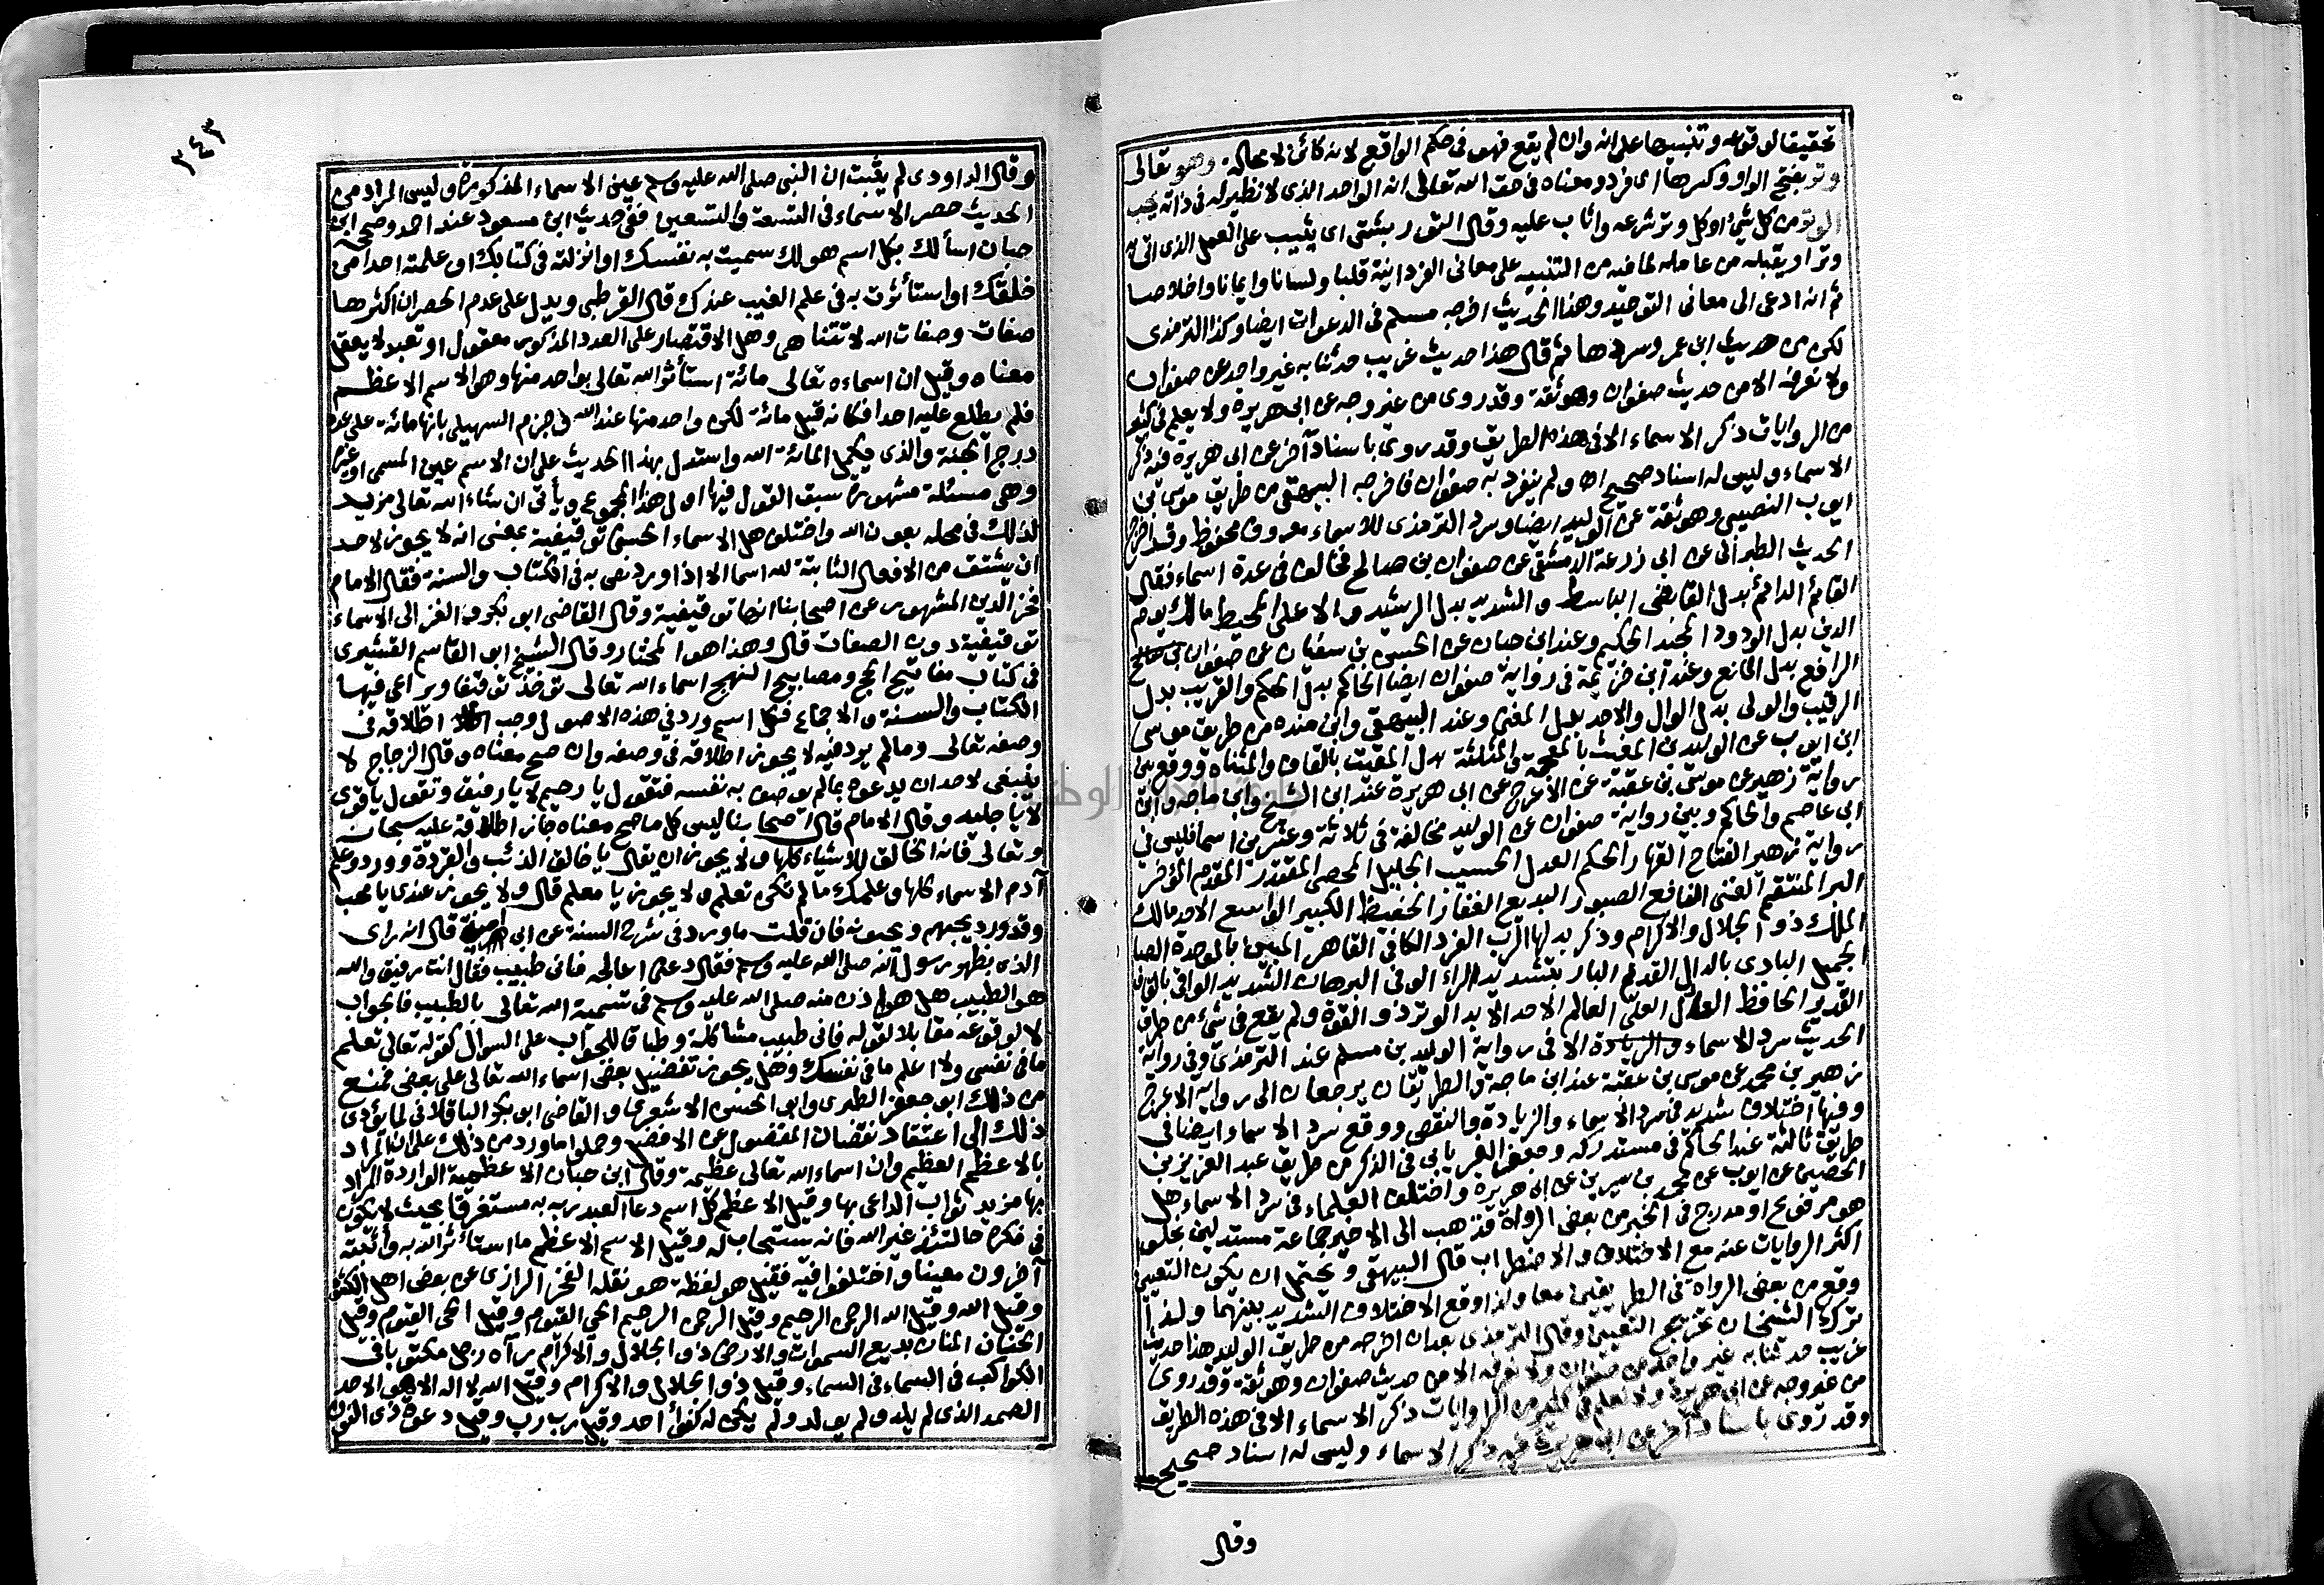 تحقيقا لوقوعه وتنبيها على انه وان لم يقع فهو فى حكم الواقع لانه كائن لا محالة وهو تعالى
وتر بفتح الواو وكسرها اى فرد ومعناه فى حق الله تعالى انه الواحد الذى لا نظير له فى ذاته يحب
الوتر من كل شئ او كل وتر شرعه واثاب عليه وقال التوربشتى اى يثيب على العمل الذى اتى به
وترا ويقبله من عامله لما فيه من التنبيه على معانى الفردانية قلبا ولسانا وايمانا واخلاصا
ثم انه ادعى الى معانى التوحيد وهذا الحديث اخرجه مسلم فى الدعوات ايضا وكذا الترمذى
لكن من حديث ابن عمر وسردها ثم قال هذا حديث غريب حدثنا به غير واحد عن صفوان
ولا نعرفه الا من حديث صفوان وهو ثقة وقد روى من غير وجه عن ابى هريرة ولا يعلم فى كثير
من الروايات ذكر الاسماء الا فى هذه الطريق وقد روى باسناد آخر عن ابى هريرة فيه ذكر
الاسماء وليس له اسناد صحيح اه ولم ينفرد به صفوان فاخرجه البيهقى من طريق موسى بن
ايوب النصيبى وهو ثقة عن الوليد ايضا وسرد الترمذى للاسماء معروف محفوظ وقد اخرج
الحديث الطبرانى عن ابى زرعة الدمشقى عن صفوان بن صالح فخالف فى عدة اسماء فقال
القائم الدائم بدل القابض الباسط والشديد بدل الرشيد والاعلى المحيط مالك يوم
الدين بدل الودود المجيد الحكيم وعند ابن حبان عن الحسن بن سفيان عن صفوان بن صالح
الرافع بدل المانع وعند ابن خزيمة فى رواية صفوان ايضا الحاكم بدل الحكم والقريب بدل
الرقيب والمولى بدل الوال والاحد بدل المغنى وعند البيهقى وابن منده من طريق موسى
ابن ايوب عن الوليد بن المغيث بالمعجمة والمثلثة بدل المقيت بالقاف والمثناه ووقع بين
رواية زهير عن موسى بن عقبة عن الاعرج عن ابى هريرة عند ابى الشيخ وابن ماجه وابن
ابى عاصم والحاكم وبين رواية صفوان عن الوليد مخالفة فى ثلاثة وعشرين اسما فليس فى
رواية زهير الفتاح القهار الحكم العدل الحسيب الجليل المحصى المقتدر المقدم المؤخر
البر المنتقم الغنى النافع الصبور البديع الغفار الحفيظ الكبير الواسع الاحد مالك
الملك ذو الجلال والاكرام وذكر بدلها الرب الفرد الكافى القاهر المبين بالموحدة الصادق
الجميل البادى بالدال القديم البار بتشديد الراء الوفى البرهان الشديد الواقى بالقاف
القدير الحافظ العدل العلى العالم الاحد الابد الوتر ذو القوة ولم يقع فى شئ من طرق
الحديث سرد الاسماء والزيادة الا فى رواية الوليد بن مسلم عند الترمذى وفى رواية
زهير بن محمد عن موسى بن عقبة عند ابن ماجة والطريقان يرجعان الى رواية الاعرج
وفيها اختلاف شديد فى سرد الاسماء والزيادة والنقص ووقع سرد الاسماء ايضا فى
طريق ثالثة عند الحاكم فى مستدركه وجعفر الفريابى فى الذكر من طريق عبد العزيز بن
الحصين عن ايوب عن محمد بن سيرين عن ابى هريرة واختلف العلماء فى سرد الاسماء هل
هو مرفوع او مدرج فى الخبر من بعض الرواة فذهب الى الاخير جماعة مستدلين بخلو
اكثر الروايات عنه مع الاختلاف والاضطراب قال البيهقى ويحتمل ان يكون التعيين
وقع من بعض الرواة فى الطريقين معا ولذا وقع الاختلاف الشديد بينهما ولذا
ترك الشيخان تخريج التعيين وقال الترمذى بعد ان اخرجه من طريق الوليد هذا حديث
غريب حدثنا به غير واحد عن صفوان ولا نعرفه الا من حديث صفوان وهو ثقة وقد روى
من غير وجه عن ابى هريرة ولا نعلم فى كثير من الروايات ذكر الاسماء الا فى هذه الطريق
وقد روى باسناد آخر عن ابى هريرة فيه ذكر الاسماء وليس له اسناد صحيح
وقال
٣٤٣
وقال الداودى لم يثبت ان النبى صلى الله عليه وسلم عين الاسماء المذكورة وليس المراد من
الحديث حصر الاسماء فى التسعة والتسعين ففى حديث ابن مسعود عند احمد وصححه ابن
حبان اسألك بكل اسم هو لك سميت به نفسك او انزلته فى كتابك او علمته احدا من
خلقك او استأثرت به فى علم الغيب عندك قال القرطبى ويدل على عدم الحصر ان اكثرها
صفات وصفات الله لا تتناهى وهل الاقتصار على العدد المذكور معقول او تعبد لا يعقل
معناه وقيل ان اسماءه تعالى مائة استأثر الله تعالى بواحد منها وهو الاسم الاعظم
فلم يطلع عليه احدا فكانه قيل مائة لكن واحد منها عند الله وجزم السهيلى بانها مائة على عدد
درج الجنة والذى يكمل المائة الله واستدل بهذا الحديث على ان الاسم عين المسمى او غيره
وهى مسئلة مشهورة سبق القول فيها اول هذا المجموع ويأتى ان شاء الله تعالى مزيد
لذلك فى محله بعون الله واختلف هل الاسماء الحسنى توقيفية بمعنى انه لا يجوز لاحد
ان يشتق من الافعال الثابتة لله اسما الا اذا ورد نص به فى الكتاب والسنة فقال الامام
فخر الدين المشهور عن اصحابنا انها توقيفية وقال القاضى ابو بكر والغزالى الاسماء
توقيفية دون الصفات قال وهذا هو المختار وقال الشيخ ابو القاسم القشيرى
فى كتاب مفاتيح الحج ومصابيح النهج اسماء الله تعالى توخذ توقيفا ويراعى فيها
الكتاب والسنة والاجماع فكل اسم ورد فى هذه الاصول وجب اطلاقه فى
وصفه تعالى وما لم يرد فيه لا يجوز اطلاقه فى وصفه وان صح معناه وقال الزجاج لا
ينبغى لاحد ان يدعوه بما لم يصف به نفسه فتقول يا رحيم لا يا رفيق وتقول يا قوى
لا يا جليد وقال الامام قال اصحابنا ليس كل ما صح معناه جاز اطلاقه عليه سبحانه
وتعالى فانه الخالق للاشياء كلها ولا يجوز ان يقال يا خالق الذئب والقردة وورد وعلم
آدم الاسماء كلها وعلمك ما لم تكن تعلم ولا يجوز يا معلم قال ولا يجوز عندى يا محب
وقد ورد يحبهم ويحبونه فان قلت ما ورد فى شرح السنة عن ابى رمثة قال انه راى
الذى بظهر رسول الله صلى الله عليه وسلم فقال دعنى اعالجه فانى طبيب فقال انت رفيق والله
هو الطبيب هل هو اذن منه صلى الله عليه وسلم فى تسمية الله تعالى بالطبيب فالجواب
لا لوقوعه مقابلا لقوله فانى طبيب مشاكلة وطباقا للجواب على السوال كقوله تعالى تعلم
ما فى نفسى ولا اعلم ما فى نفسك وهل يجوز تفضيل بعض اسماء الله تعالى على بعض فمنع
من ذلك ابو جعفر الطبرى وابو الحسن الاشعرى والقاضى ابو بكر الباقلانى لما يؤدى
ذلك الى اعتقاد نقصان المفضول عن الافضل وحملوا ما ورد من ذلك على ان المراد
بالاعظم العظيم وان اسماء الله تعالى عظيمة وقال ابن حبان الاعظمية الواردة المراد
بها مزيد ثواب الداعى بها وقيل الاعظم كل اسم دعا العبد ربه به مستغرقا بحيث لا يكون
فى فكره حالتئذ غير الله فانه يستجاب له وقيل الاسم الاعظم ما استأثر الله به واثبته
آخرون معينا واختلفوا فيه فقيل هو لفظة هو نقله الفخر الرازى عن بعض اهل الكشف
وقيل الله وقيل الله الرحمن الرحيم وقيل الرحمن الرحيم الحى القيوم وقيل الحى القيوم وقيل
الحنان المنان بديع السموات والارض ذو الجلال والاكرام رآه رجل مكتوبا فى
الكواكب فى السماء وقيل ذو الجلال والاكرام وقيل الله لا اله الا هو الاحد
الصمد الذى لم يلد ولم يولد ولم يكن له كفوا احد وقيل رب رب وقيل دعوة ذى النون